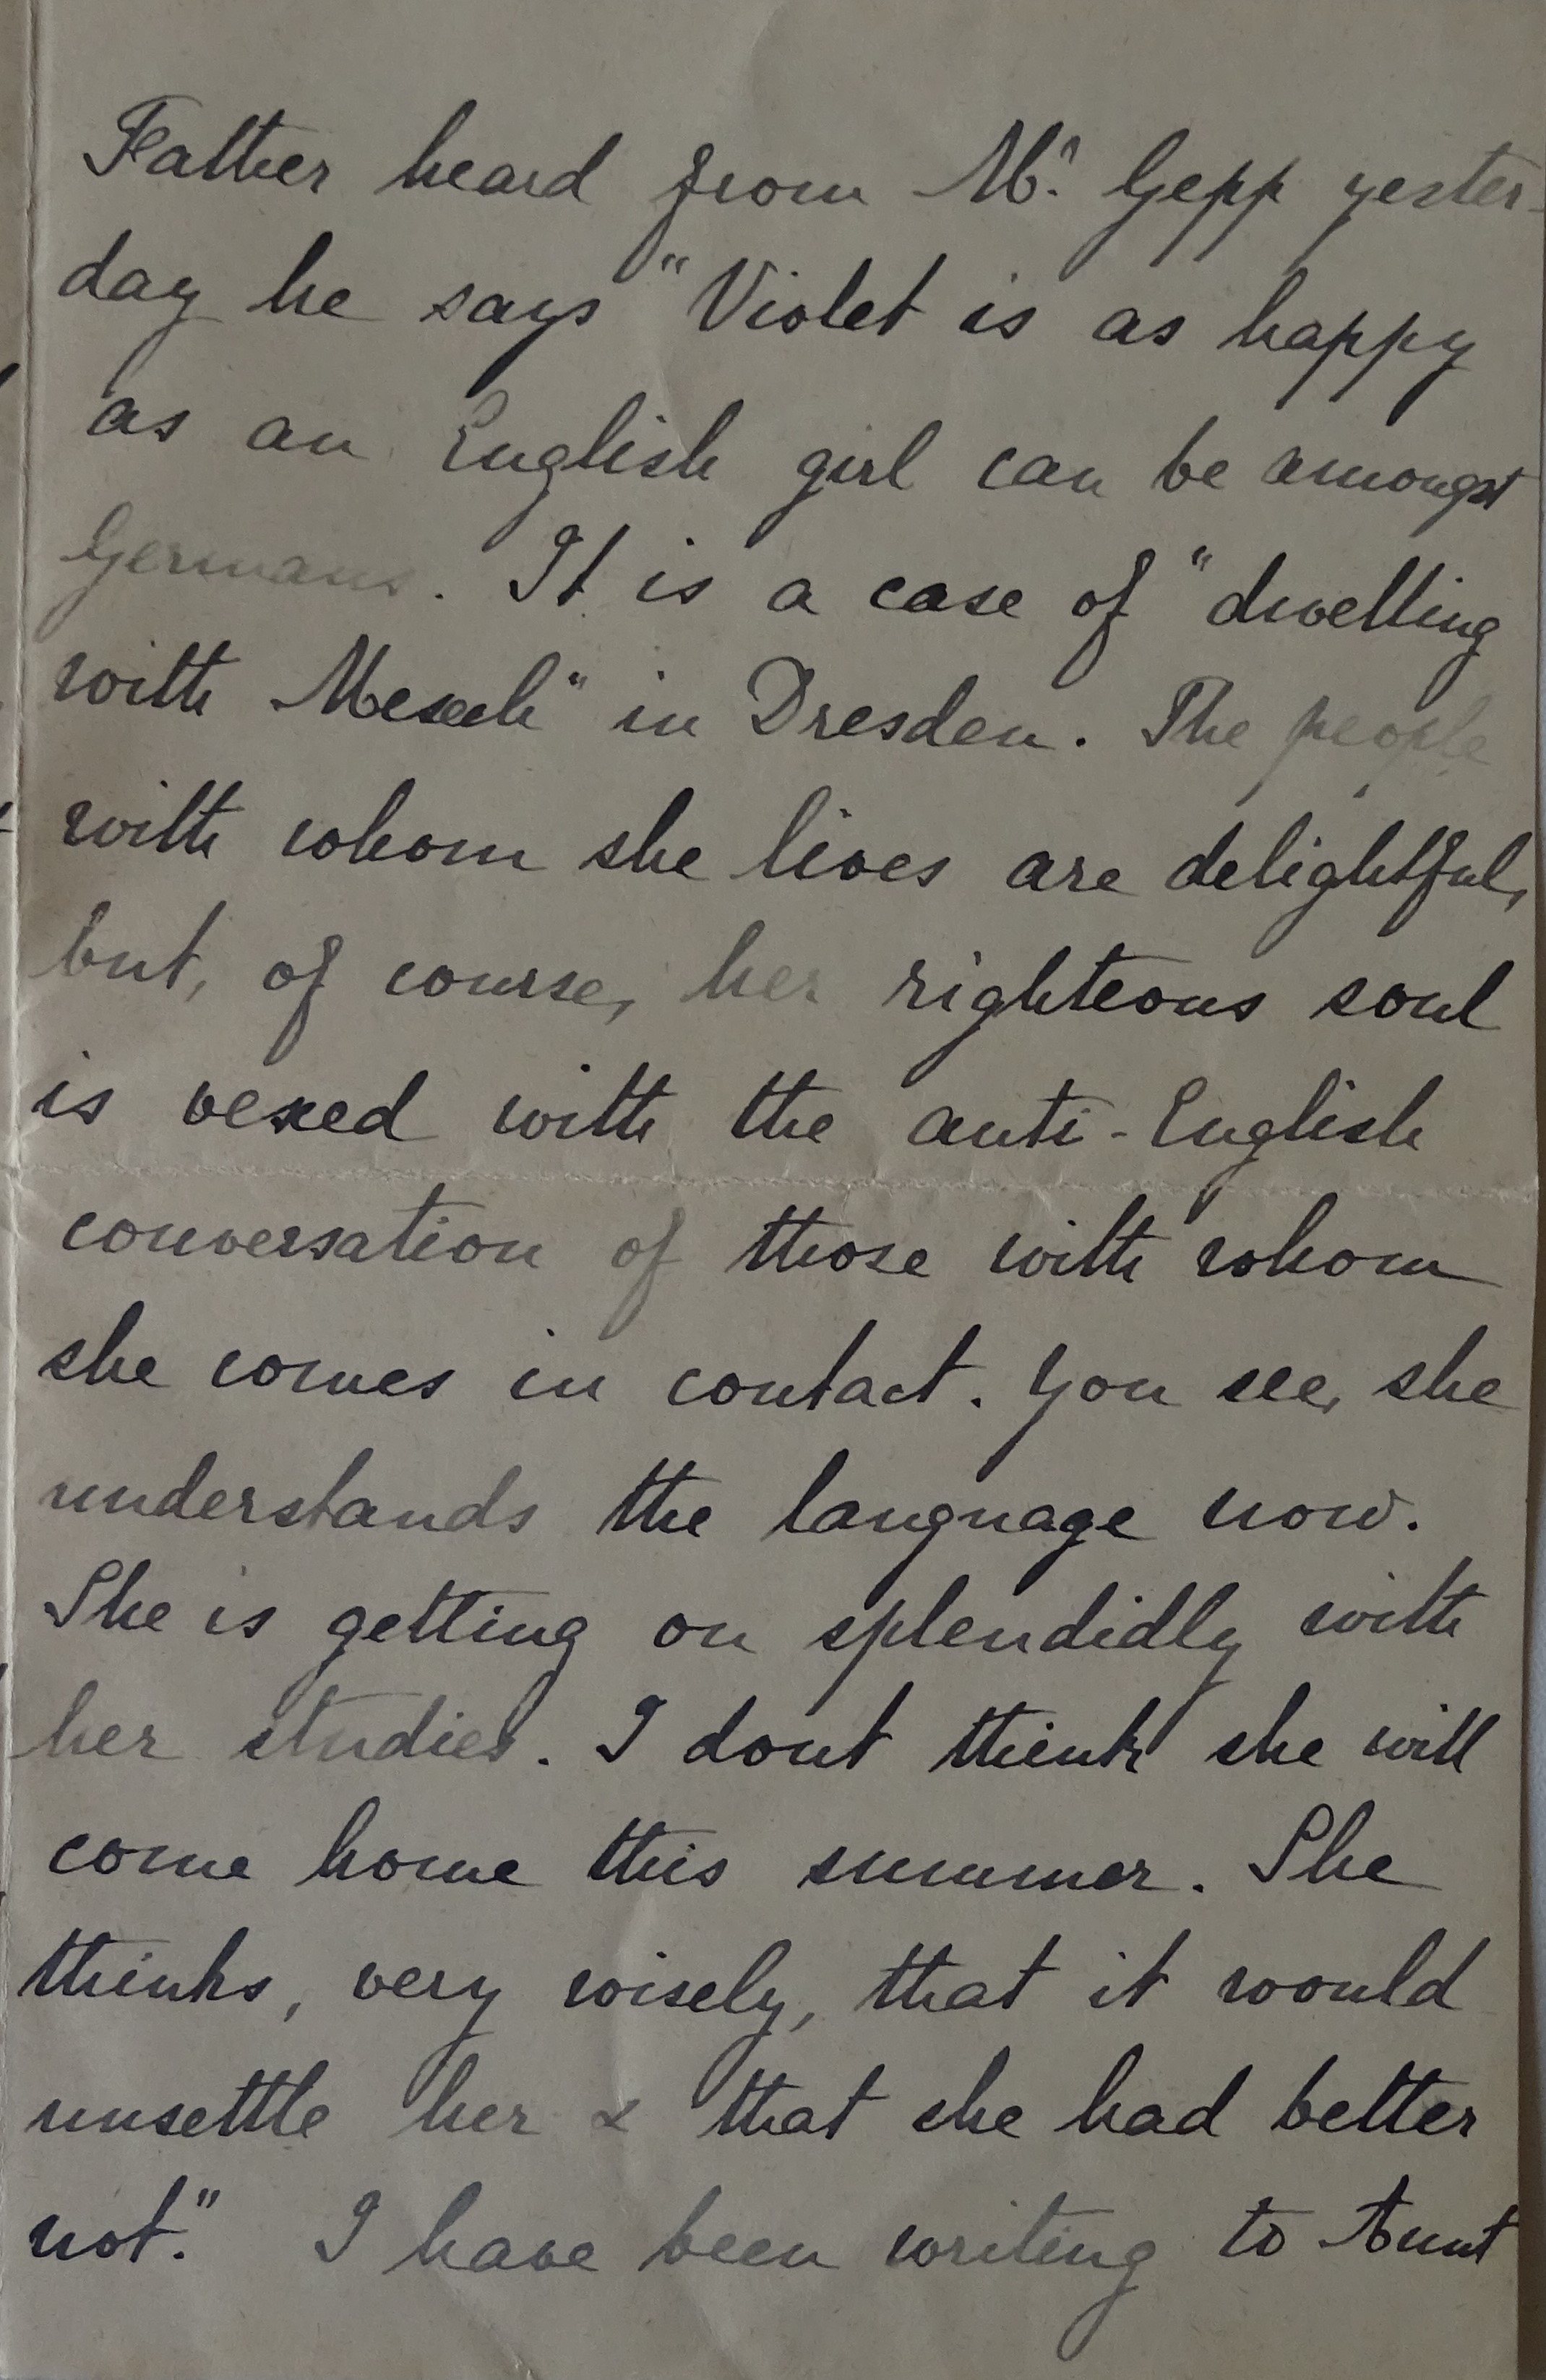 Father heard from Mr. Gepp yester-
day he says "Violet is as happy
as an English girl can be amongst
Germans. It is a case of "dwelling
with Mesech" in Dresden. The people
with whom she lives are delightful,
but, of course, her righteous soul
is vexed with the anti-English
conversation of those with whom
she comes in contact. You see, she
understands the language now.
She is getting on splendidly with
her studies. I dont think she will
come home this summer. She
thinks, very wisely, that it would
unsettle her & that she had better
not." I have been writing to Aunt